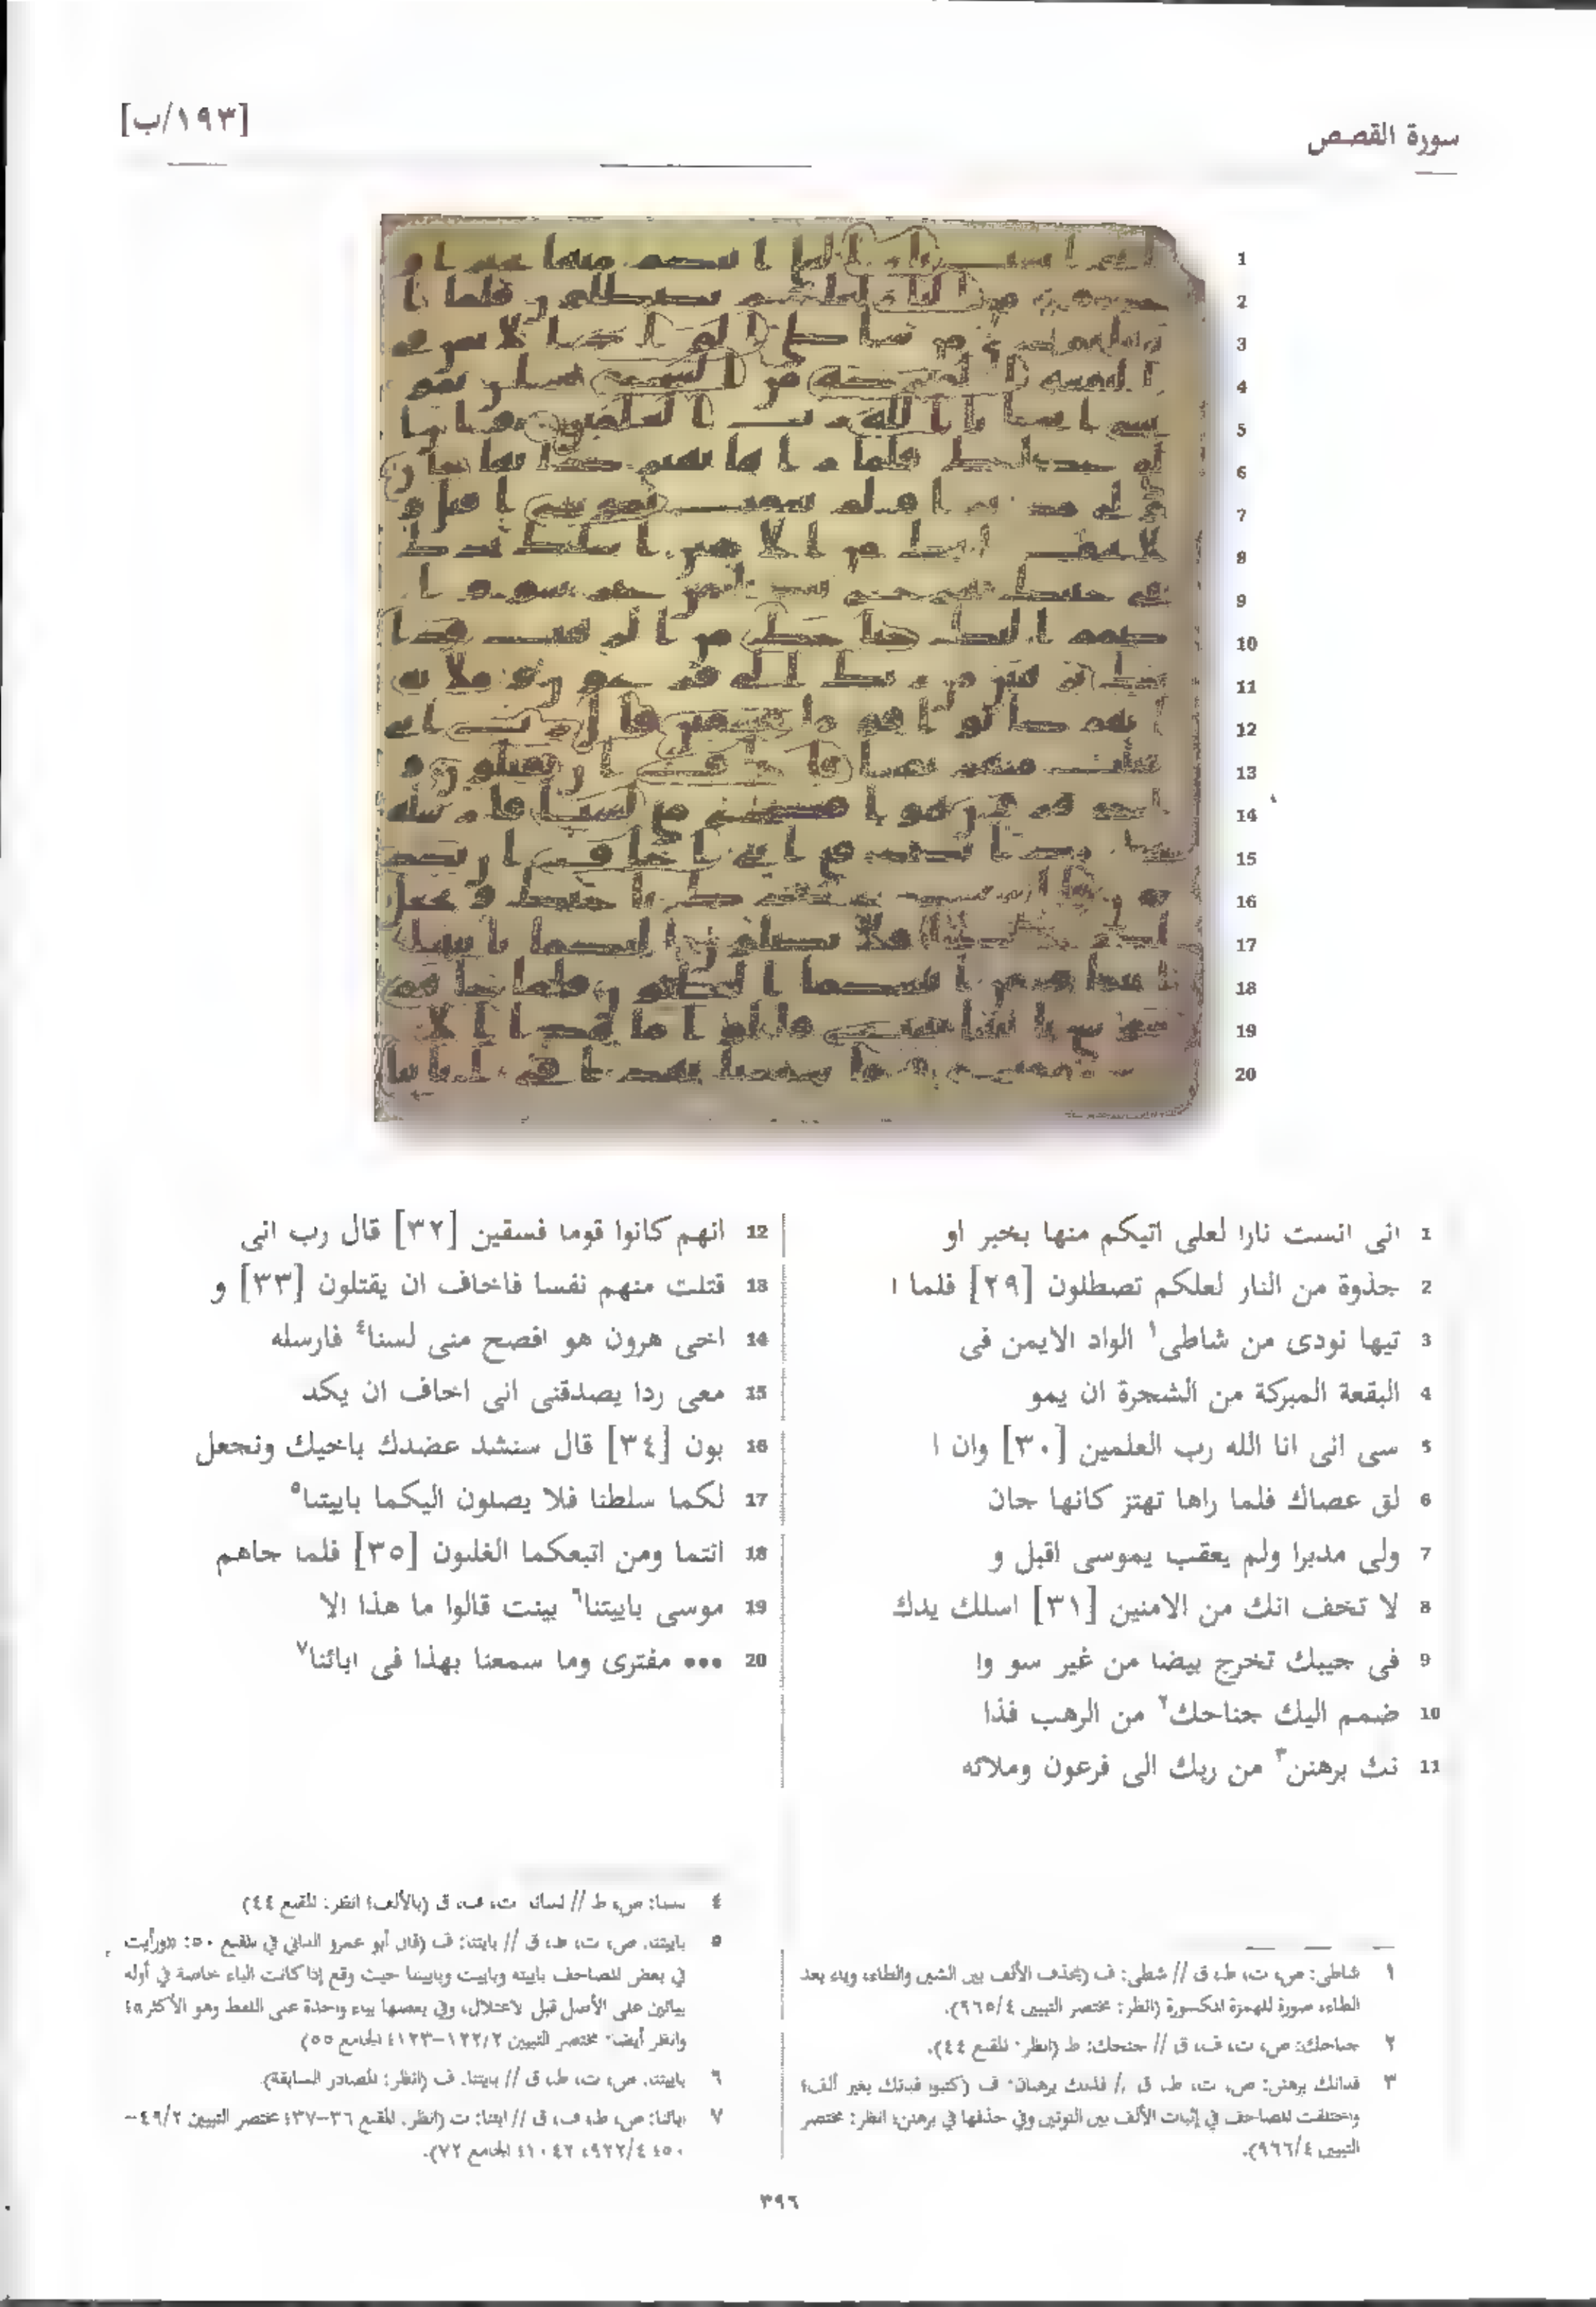 سورة القصص
[١٩٣/ب]
1 انى انست نارا لعلى اتيكم منها بخبر او
2 جذوة من النار لعلكم تصطلون [٢٩] فلما ا
3 تيها نودى من شاطى١ الواد الايمن فى
4 البقعة المبركة من الشجرة ان يمو
5 سى انى انا الله رب العلمين [٣٠] وان ا
6 لق عصاك فلما راها تهتز كانها جان
7 ولى مدبرا ولم يعقب يموسى اقبل و
8 لا تخف انك من الامنين [٣١] اسلك يدك
9 فى جيبك تخرج بيضا من غير سو وا
10 ضمم اليك جناحك٢ من الرهب فذا
11 نك برهنن٣ من ربك الى فرعون وملائه
12 انهم كانوا قوما فسقين [٣٢] قال رب انى
13 قتلت منهم نفسا فاخاف ان يقتلون [٣٣] و
14 اخى هرون هو افصح منى لسنا٤ فارسله
15 معى ردا يصدقنى انى اخاف ان يكذ
16 بون [٣٤] قال سنشد عضدك باخيك ونجعل
17 لكما سلطنا فلا يصلون اليكما باييتنا٥
18 انتما ومن اتبعكما الغلبون [٣٥] فلما جاهم
19 موسى باييتنا٦ بينت قالوا ما هذا الا
20 ••• مفترى وما سمعنا بهذا فى ابائنا٧
١ شاطى: ص، ت، ط، ق // شطى: ف (بحذف الألف بين الشين والطاء، وياء بعد
الطاء، صورة للهمزة المكسورة (انظر: مختصر التبيين ٩٦٥/٤).
٢ جناحك: ص، ت، ف، ق // جنحك: ط (انظر: المقنع ٤٤).
٣ فذانك برهنن: ص، ت، ط، ق // فذنك برهنان: ف (كتبوا فذنك بغير ألف؛
واختلفت المصاحف في إثبات الألف بين النونين وفي حذفها في برهنن؛ انظر: مختصر
التبيين ٩٦٦/٤).
٤ لسنا: ص، ط // لسانا: ت، ف، ق (بالألف؛ انظر: المقنع ٤٤)
٥ باييتنا: ص، ت، ط، ق // بايتنا: ف (قال أبو عمرو الداني في المقنع ٥٠: «ورأيت
في بعض المصاحف باييته وباييت وباييتنا حيث وقع إذا كانت الباء خاصة في أوله
بيائين على الأصل قبل الاعتلال، وفي بعضها بياء واحدة على اللفظ وهو الأكثر»؛
وانظر أيضا: مختصر التبيين ١٢٢/٢–١٢٣؛ الجامع ٥٥)
٦ باييتنا: ص، ت، ط، ق // بايتنا: ف (انظر: المصادر السابقة).
٧ ابائنا: ص، ط، ف، ق // ابتنا: ت (انظر: المقنع ٣٦–٣٧؛ مختصر التبيين ٤٩/٢–
٥٠؛ ٩٢٢/٤، ١٠٤٢؛ الجامع ٧٢).
٣٩٦